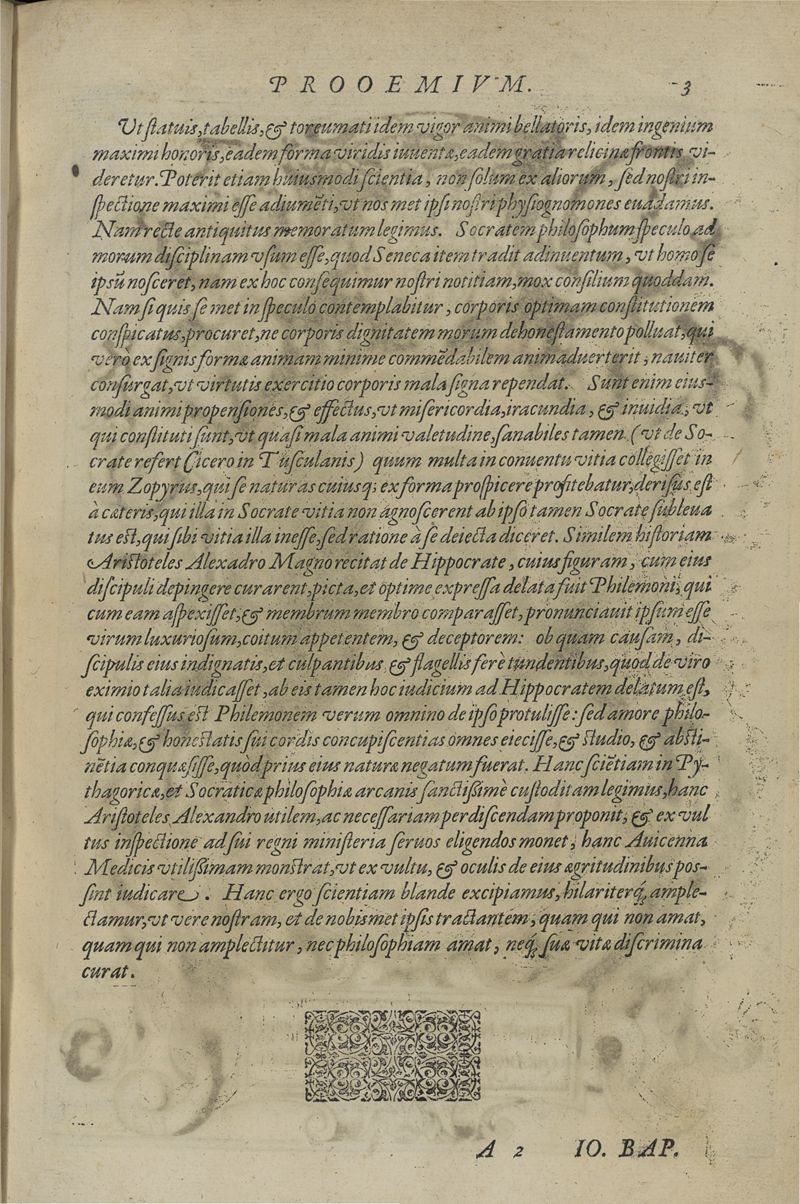 PROOEMIVM. 3
Vt ſtatuis, tabellis, & toreumati idem vigor animi bellatoris, idem ingenium
maximi honoris, eadem forma viridis iuuentæ, eadem gratia relicinæ frontis vi-
deretur. Poterit etiam huiusmodi ſcientia, non ſolum ex aliorum, ſed noſtri in-
ſpectione maximi eſſe adiumēti, vt nos met ipſi noſtri phyſiognomones euadamus.
Nam recte antiquitus memoratum legimus. Socratem philoſophum ſpeculo ad
morum diſciplinam vſum eſſe, quod Seneca item tradit adinuentum, vt homo ſe
ipsū noſceret, nam ex hoc conſequimur noſtri notitiam, mox conſilium quoddam.
Nam ſi quis ſe met in ſpeculo contemplabitur, corporis optimam conſtitutionem
conſpicatus, procuret, ne corporis dignitatem morum dehoneſtamento polluat, qui
vero ex ſignis formæ animam minime commēdabilem animaduerterit, nauiter
conſurgat, vt virtutis exercitio corporis mala ſigna rependat. Sunt enim eius-
modi animi propenſiones, & effectus, vt miſericordia, iracundia, & inuidia, vt
qui conſtituti ſunt, vt quaſi mala animi valetudine, ſanabiles tamen (vt de So-
crate refert Cicero in Tuſculanis) quum multa in conuentu vitia collegiſſet in
eum Zopyrus, qui ſe naturas cuiusq; ex forma proſpicere profitebatur, deriſus eſt
à cæteris, qui illa in Socrate vitia non agnoſcerent ab ipſo tamen Socrate ſubleua
tus eſt, qui ſibi vitia illa ineſſe, ſed ratione à ſe deiecta diceret. Similem hiſtoriam
Ariſtoteles Alexādro Magno recitat de Hippocrate, cuius figuram, cum eius
diſcipuli depingere curarent, picta, et optime expreſſa delata fuit Philemoni, qui
cum eam aſpexiſſet, & membrum membro comparaſſet, pronunciauit ipſum eſſe
virum luxurioſum, coitum appetentem, & deceptorem: ob quam cauſam, di-
ſcipulis eius indignatis, et culpantibus & flagellis ferè tundentibus, quod de viro
eximio talia iudicaſſet, ab eis tamen hoc iudicium ad Hippocratem delatum eſt,
qui confeſſus eſt Philemonem verum omnino de ipſo protuliſſe: ſed amore philo-
ſophiæ, & honeſtatis ſui cordis concupiſcentias omnes eieciſſe, & ſtudio, & abſti-
nētia conquæſiſſe, quòd prius eius naturæ negatum fuerat. Hanc ſciētiam in Py-
thagoricæ, et Socraticæ philoſophiæ arcanis ſanctißimè cuſtoditam legimus, hanc
Ariſtoteles Alexandro utilem, ac neceſſariam perdiſcendam proponit, & ex vul
tus inſpectione ad ſui regni miniſteria ſeruos eligendos monet, hanc Auicenna
Medicis vtilißimam monſtrat, vt ex vultu, & oculis de eius ægritudinibus poſ-
ſint iudicare. Hanc ergo ſcientiam blande excipiamus, hilariterq; ample-
ctamur, vt vere noſtram, et de nobismet ipſis tractantem, quam qui non amat,
quam qui non amplectitur, nec philoſophiam amat, neq; ſuæ vitæ diſcrimina
curat.
A 2 IO. BAP.